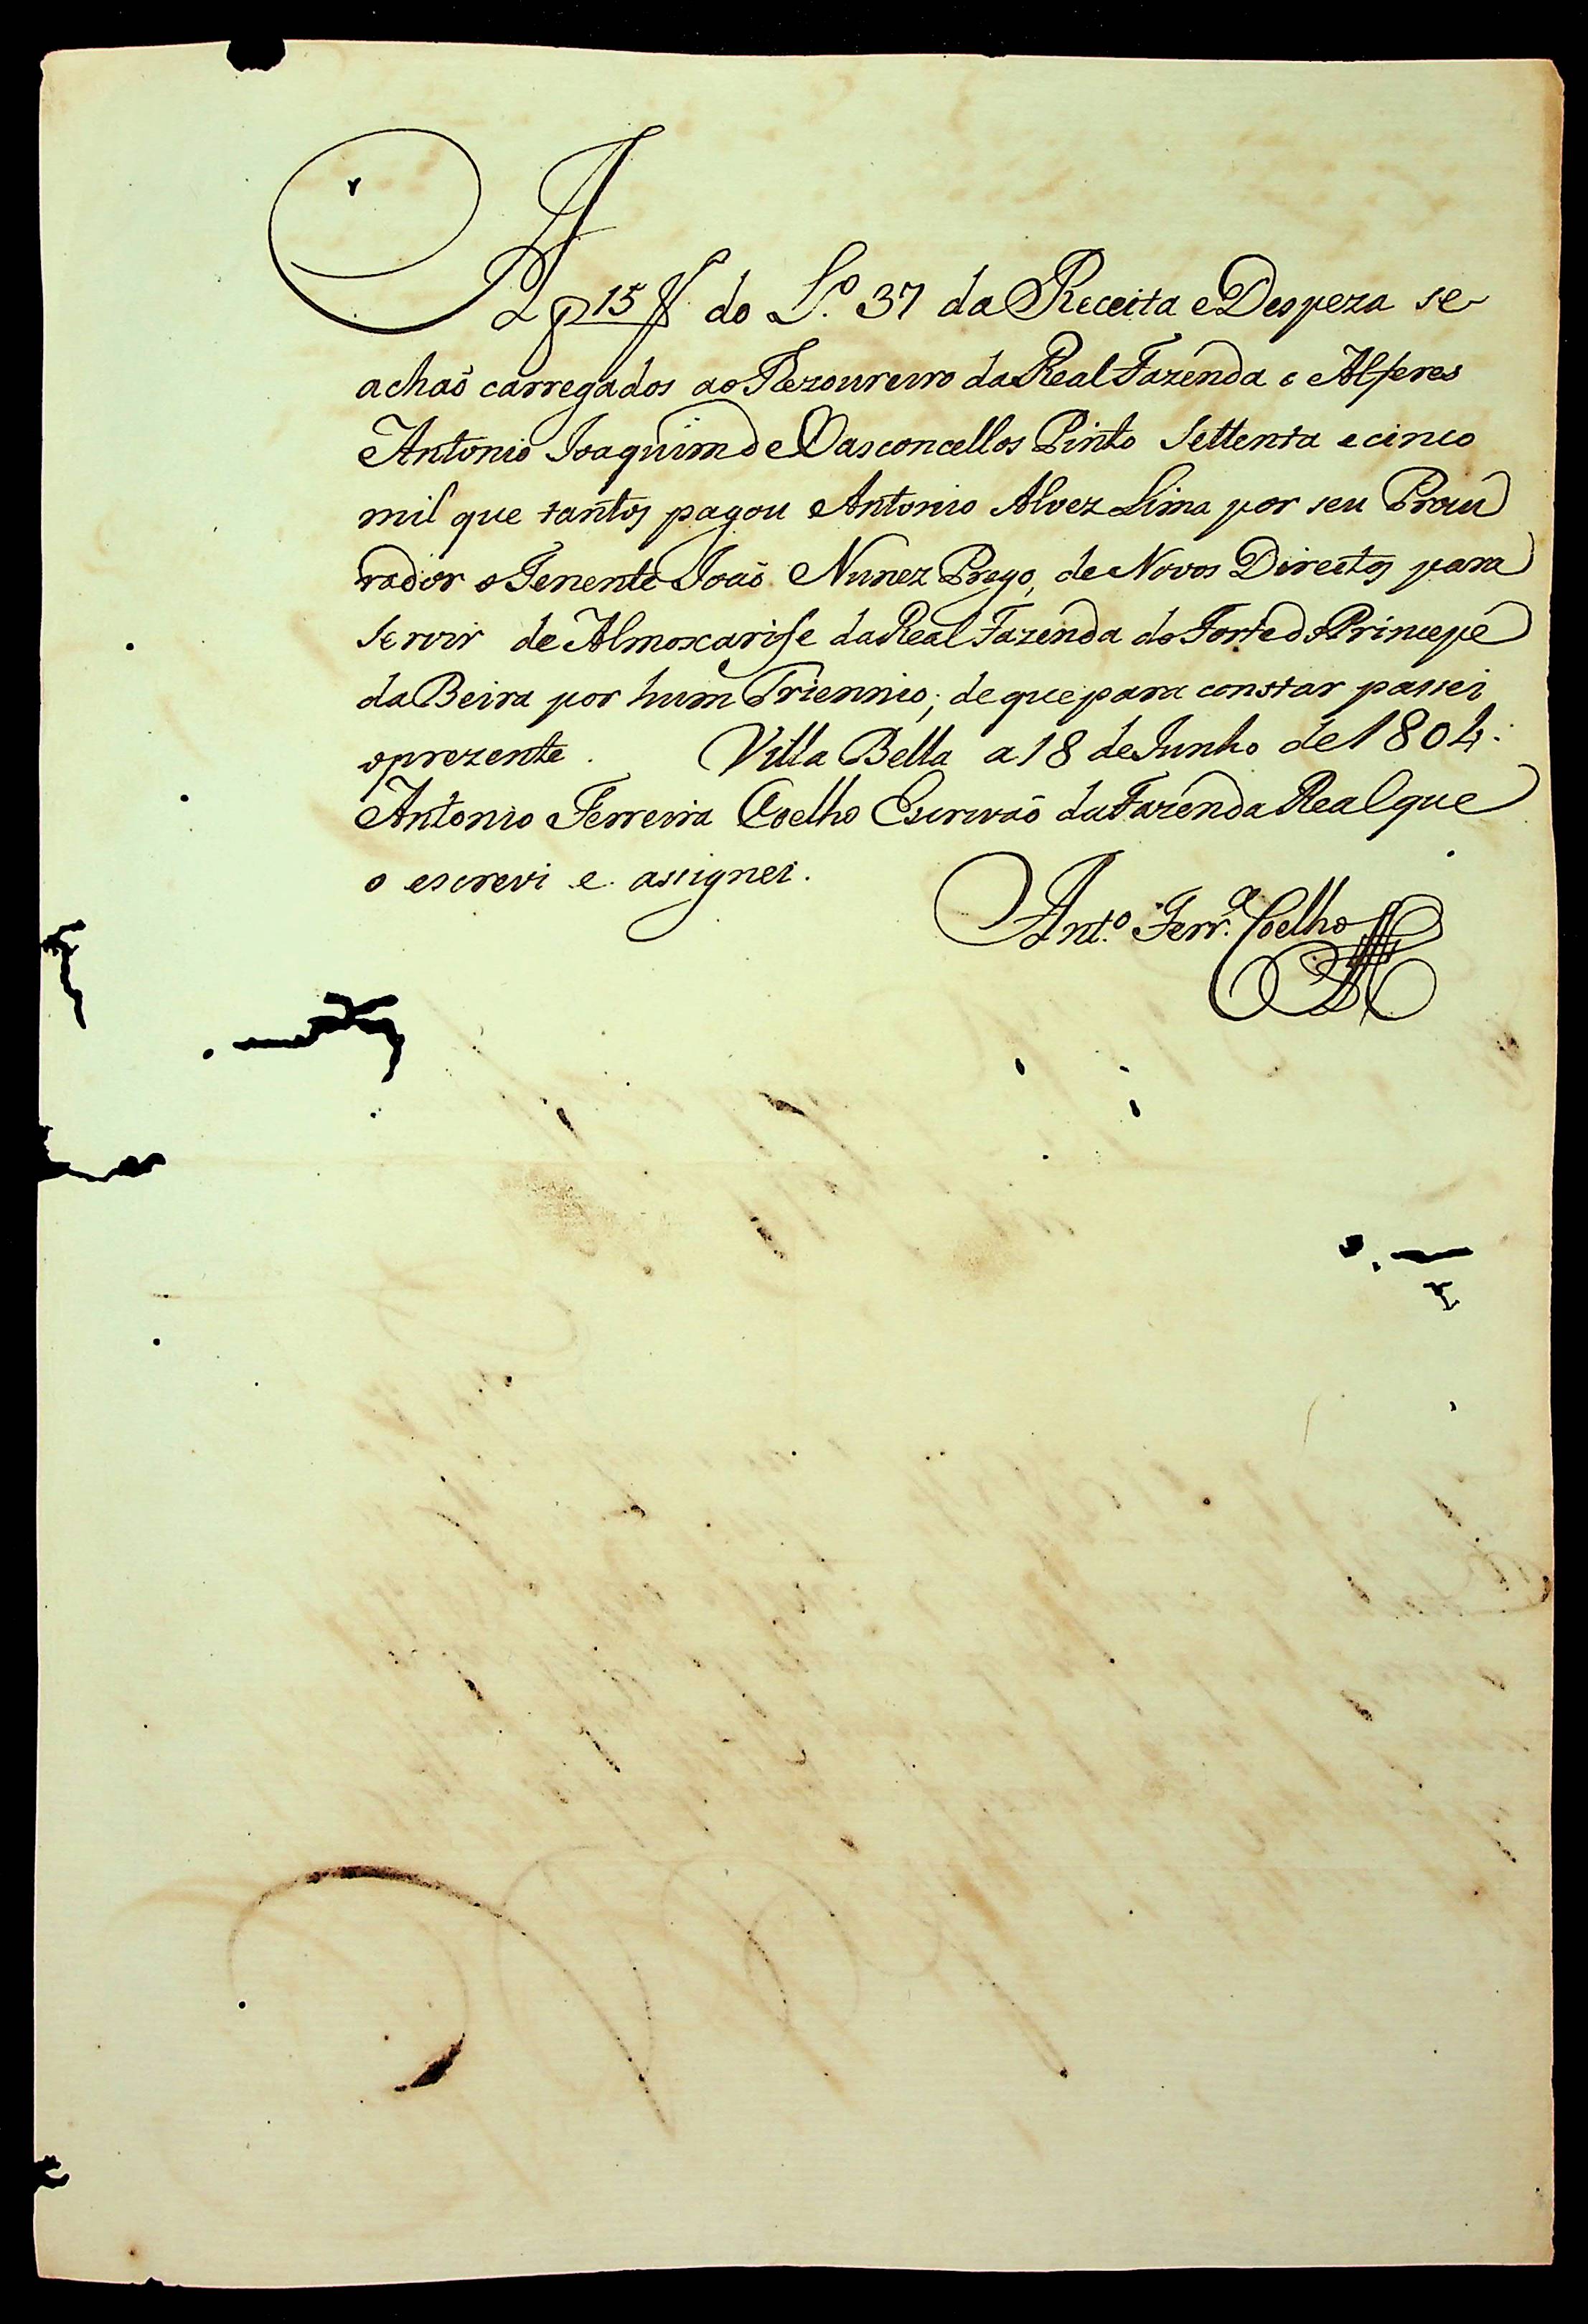 A p 15 f. do L.º 37 da Receita e Despeza se
achaõ carregados ao Thezoureiro da Real Fazenda o Alferes
Antonio Joaquim de Vasconcellos Pinto Settenta e cinco
mil que tantos pagou Antonio Alvez Lima por seu Procu
rador o Tenente Joaõ Nunez Prego, de Novos Direitos para
servir de Almoxarife da Real Fazenda do Forte do Princepe
da Beira por hum Triennio; de que para constar passei
o prezente. Villa Bella a 18 de Junho de 1804.
Antonio Ferreira Coelho Escrivaõ da Fazenda Real que
o escrevi e assignei.
Ant.º Ferr.ª Coelho